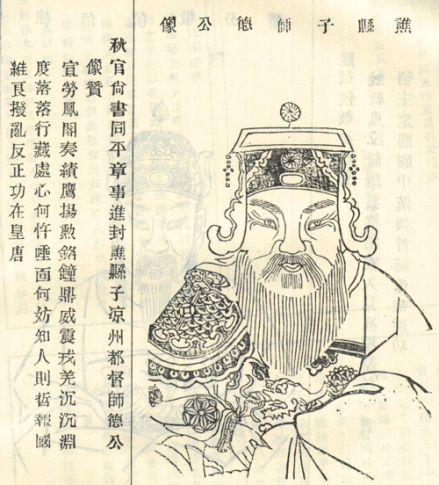 譙縣子師德公像
秋官尙書同平章事進封譙縣子凉州都督師德公
像贊
宣勞鳳閣奏績鷹揚勲銘鐘鼎威震戎羌沉沉淵
度落落行藏處心何忤唾面何妨知人則哲報國
維艮撥亂反正功在皇唐